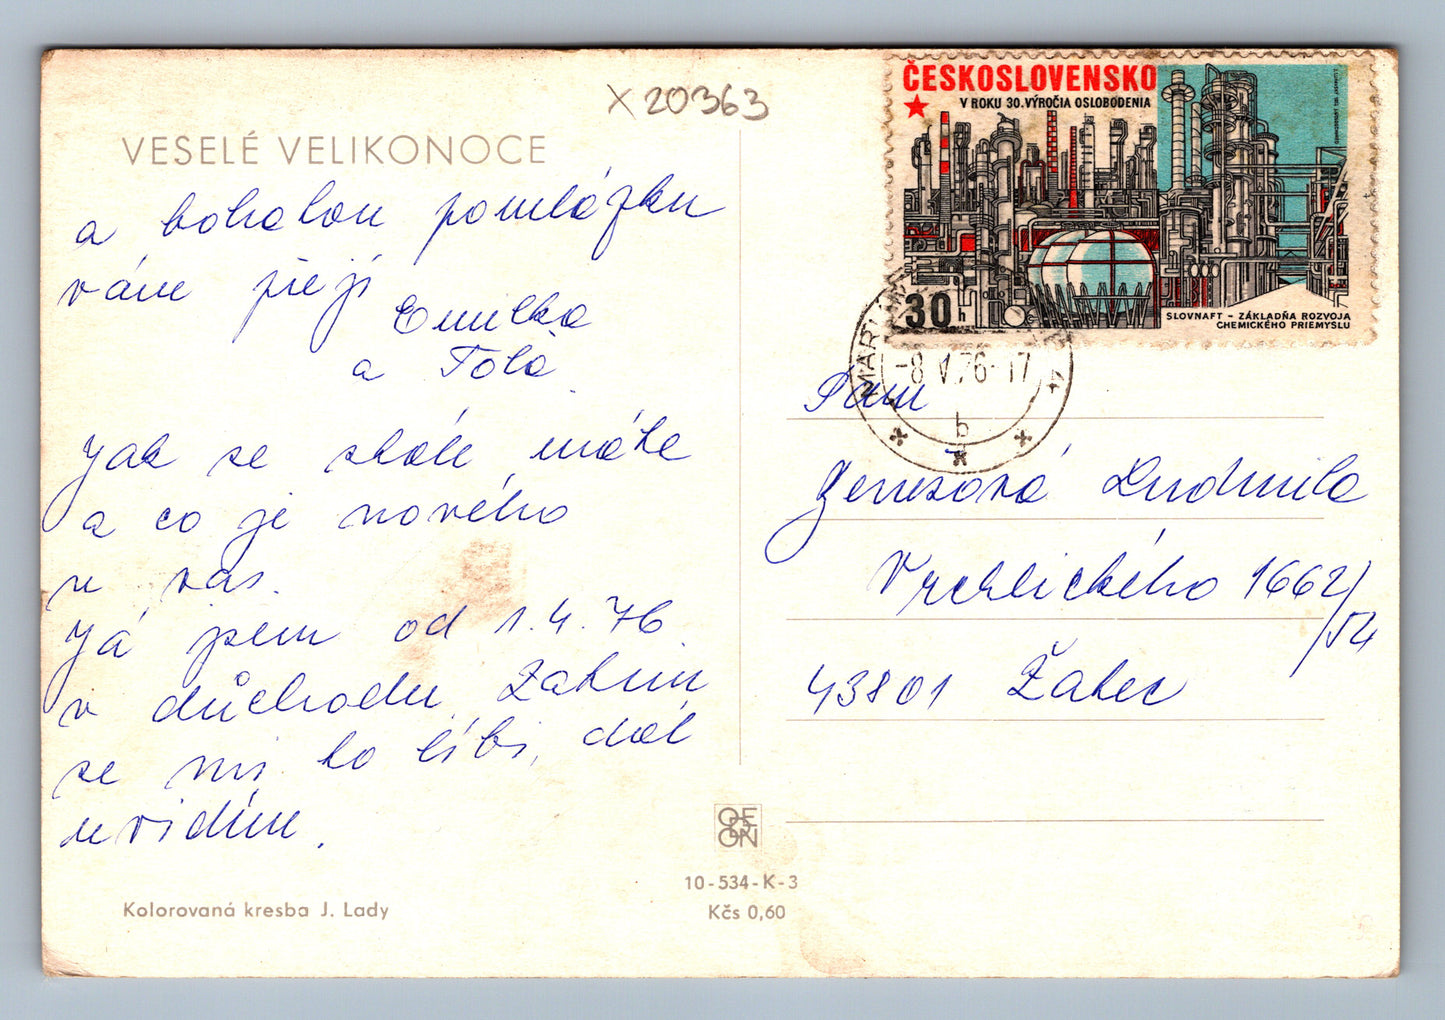 X 20363
VESELÉ VELIKONOCE
a bohatou pomlázku
vám přejí
Emilka
a Tola
Jak se skáče, máte
a co je nového
u vás.
Já jsem od 1.4.76
v důchodu. Zatím
se mi to líbí, dál
uvidím.
Kolorovaná kresba J. Lady
ODEON
10-534-K-3
Kčs 0,60
ČESKOSLOVENSKO
V ROKU 30. VÝROČIA OSLOBODENIA
30 h
SLOVNAFT - ZÁKLADŇA ROZVOJA
CHEMICKÉHO PRIEMYSLU
-8.V.76-17
b
Paní
Genesová Ludmila
Vrchlického 1662/
/54
43801 Žatec